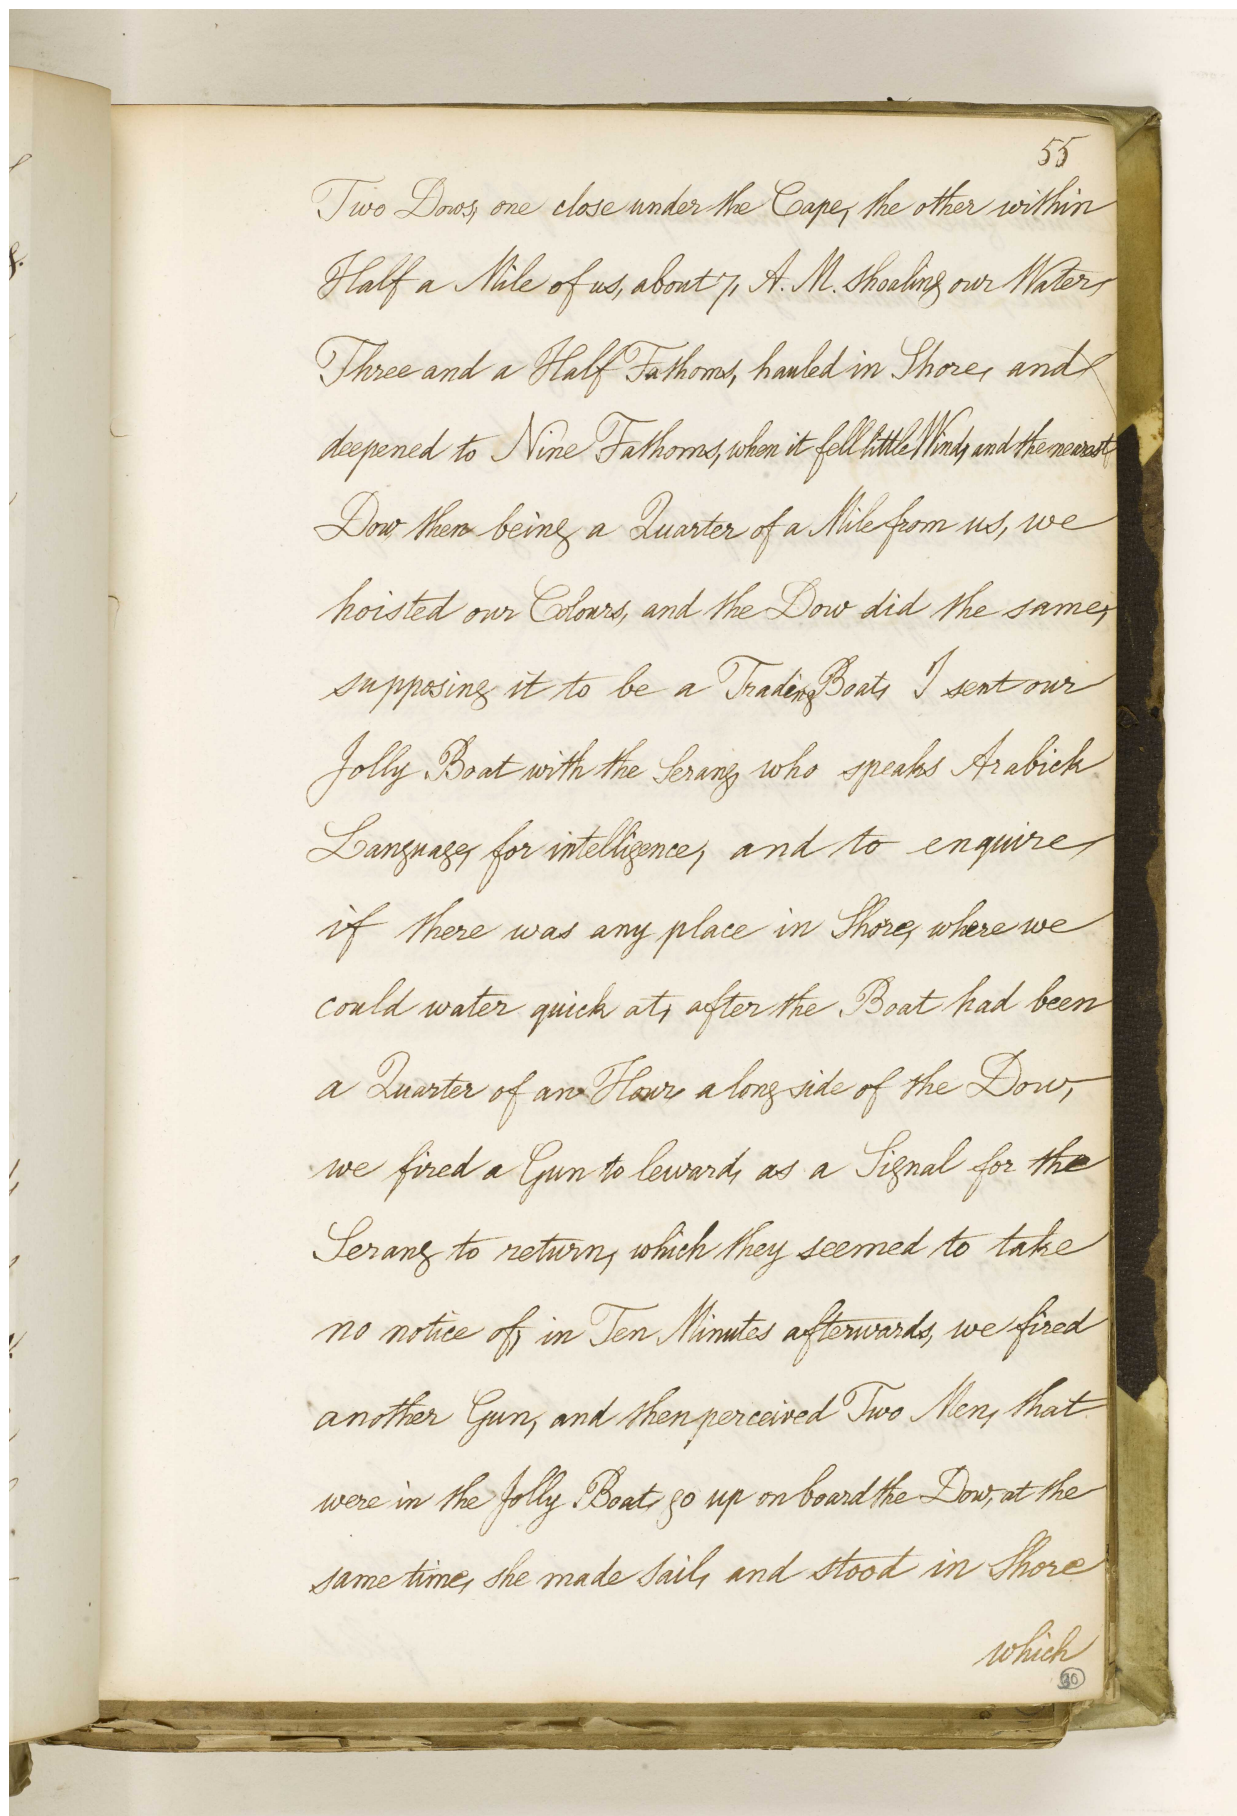 55
Two Dows, one close under the Cape, the other within
Half a Mile of us, about 7, A. M. shoaling our Water,
Three and a Half Fathoms, hauled in Shore, and
deepened to Nine Fathoms, when it fell little Wind, and the nearest
Dow, then being a Quarter of a Mile from us, we
hoisted our Colours, and the Dow did the same,
supposing it to be a Trading Boat, I sent our
Jolly Boat with the Serang, who speaks Arabick
Language, for intelligence, and to enquire,
if there was any place in Shore, where we
could water quick at, after the Boat had been
a Quarter of an Hour, along side of the Dow,
we fired a Gun to leward, as a Signal for the
Serang to return, which they seemed to take
no notice of, in Ten Minutes afterwards, we fired
another Gun, and then perceived Two Men, that
were in the Jolly Boat, go up on board the Dow, at the
same time, she made Sail, and stood in Shore
which